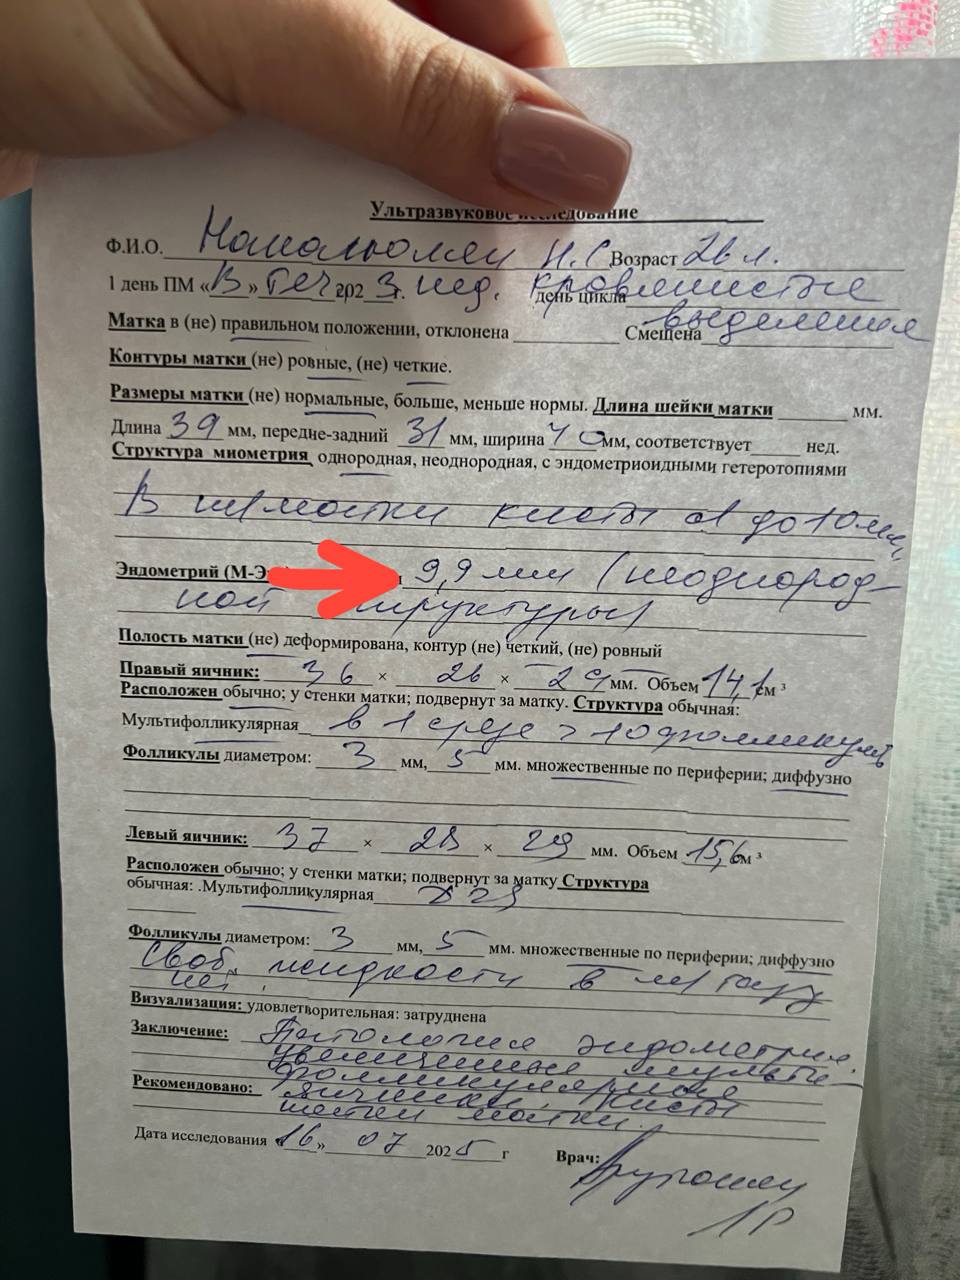 Ультразвуковое исследование
Ф.И.О. Н.С. Возраст 26 л.
1 день ПМ «В» теч. 202 3 г. нед. день цикла кровянистые
выделения
Матка в (не) правильном положении, отклонена Смещена
Контуры матки (не) ровные, (не) четкие.
Размеры матки (не) нормальные, больше, меньше нормы. Длина шейки матки мм.
Длина 39 мм, передне-задний 31 мм, ширина 40 мм, соответствует нед.
Структура миометрия однородная, неоднородная, с эндометриоидными гетеротопиями
В ш/матки кисты d до 10 мм,
Эндометрий (М-Э 9,9 мм (неоднород-
ной структуры)
Полость матки (не) деформирована, контур (не) четкий, (не) ровный
Правый яичник: 36 × 26 × 29 мм. Объем 14,1 см ³
Расположен обычно; у стенки матки; подвернут за матку. Структура обычная:
Мультифолликулярная в 1 срезе > 10 фолликулов
Фолликулы диаметром: 3 мм, 5 мм. множественные по периферии; диффузно
Левый яичник: 37 × 28 × 29 мм. Объем 15,6 см ³
Расположен обычно; у стенки матки; подвернут за матку Структура
обычная: .Мультифолликулярная
Фолликулы диаметром: 3 мм, 5 мм. множественные по периферии; диффузно
Своб. жидкости в м/тазу
нет.
Визуализация: удовлетворительная: затруднена
Заключение: Патология эндометрия.
увеличенные мульти-
фолликулярные
Рекомендовано: яичники, кисты
шейки матки.
Дата исследования «16» 07 2025 г Врач: